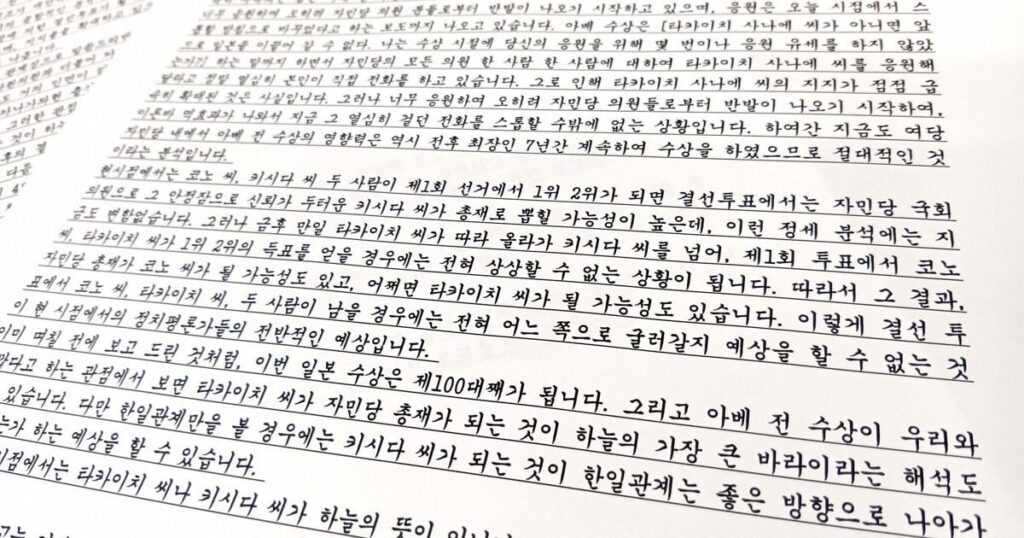 너무 응원하여 오히려 자민당 의원 분들로부터 반발이 나오기 시작하고 있으며, 응원은 오늘 시점에서 스
방향으로 바꾸었다고 하는 보도까지 나오고 있습니다. 아베 수상은 [타카이치 사나에 씨가 아니면 앞
으로 일본을 이끌어 갈 수 없다. 나는 수상 시절에 당신의 응원을 위해 몇 번이나 응원 유세를 하지 않았
는가?] 하는 말까지 하면서 자민당의 모든 의원 한 사람 한 사람에 대하여 타카이치 사나에 씨를 응원해
달라고 정말 열심히 본인이 직접 전화를 하고 있습니다. 그로 인해 타카이치 사나에 씨의 지지가 점점 급
속히 확대된 것은 사실입니다. 그러나 너무 응원하여 오히려 자민당 의원들로부터 반발이 나오기 시작하여,
이른바 역효과가 나와서 지금 그 열심히 걸던 전화를 스톱할 수밖에 없는 상황입니다. 하여간 지금도 여당
자민당 내에서 아베 전 수상의 영향력은 역시 전후 최장인 7년간 계속하여 수상을 하였으므로 절대적인 것
이라는 분석입니다.
현시점에서는 코노 씨, 키시다 씨 두 사람이 제1회 선거에서 1위 2위가 되면 결선투표에서는 자민당 국회
의원으로 그 안정감으로 신뢰가 두터운 키시다 씨가 총재로 뽑힐 가능성이 높은데, 이런 정세 분석에는 지
금도 변함없습니다. 그러나 금후 만일 타카이치 씨가 따라 올라가 키시다 씨를 넘어, 제1회 투표에서 코노
씨, 타카이치 씨가 1위 2위의 득표를 얻을 경우에는 전혀 상상할 수 없는 상황이 됩니다. 따라서 그 결과,
자민당 총재가 코노 씨가 될 가능성도 있고, 어쩌면 타카이치 씨가 될 가능성도 있습니다. 이렇게 결선 투
표에서 코노 씨, 타카이치 씨, 두 사람이 남을 경우에는 전혀 어느 쪽으로 굴러갈지 예상을 할 수 없는 것
이 현 시점에서의 정치평론가들의 전반적인 예상입니다.
이미 며칠 전에 보고 드린 것처럼, 이번 일본 수상은 제100대째가 됩니다. 그리고 아베 전 수상이 우리와
하는 관점에서 보면 타카이치 씨가 자민당 총재가 되는 것이 하늘의 가장 큰 바라이라는 해석도
있습니다. 다만 한일관계만을 볼 경우에는 키시다 씨가 되는 것이 한일관계는 좋은 방향으로 나아가
는가 하는 예상을 할 수 있습니다.
시점에서는 타카이치 씨나 키시다 씨가 하늘의 뜻이